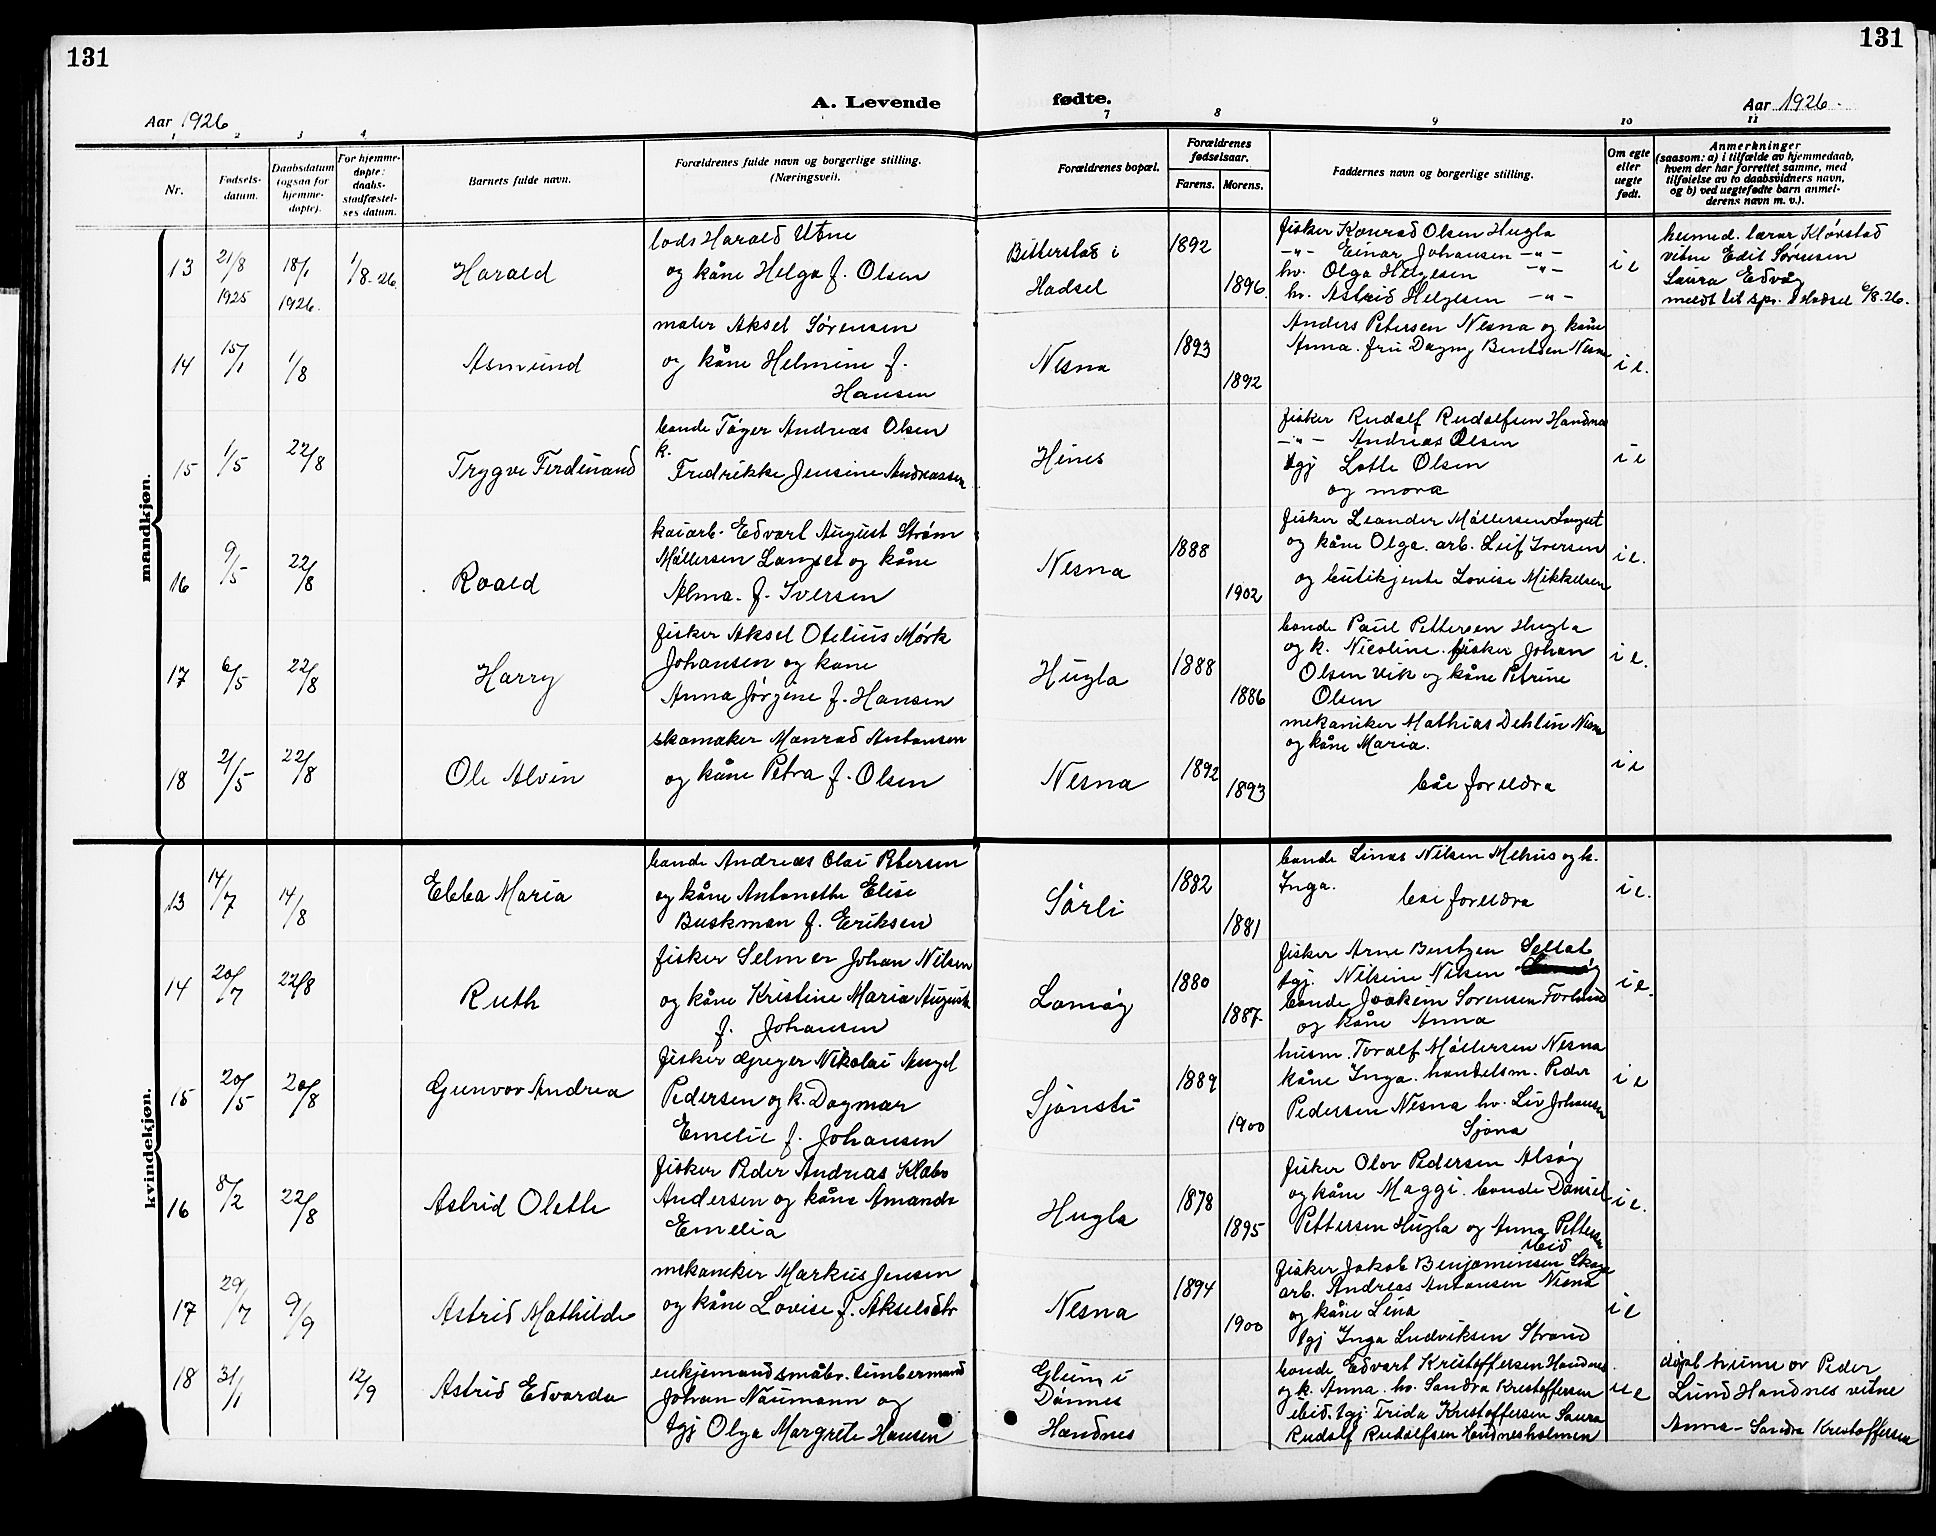 131
131
A. Levende fødte.
Aar 1926
Aar 1926.
1 2 3 4 7 8 9 10 11
Nr.
Fødsels-datum.
Daabsdatum (ogsaa for hjemme-døpte).
For hjemme-døpte: daabs-stadfæstel-ses datum.
Barnets fulde navn.
Forældrenes fulde navn og borgerlige stilling. (Næringsvei).
Forældrenes bopæl.
Forældrenes fødselsaar.
Farens. Morens.
Faddernes navn og borgerlige stilling.
Om egte eller uegte født.
Anmerkninger
(saasom: a) i tilfælde av hjemmedaab,
hvem der har forrettet samme, med
tilføielse av to daabsvidners navn,
og b) ved uegtefødte barn anmel-
derens navn m. v.).
mandkjøn.
13 21/8 1925 18/1 1926. 1/8-26 Harald
lods Harald Utne
og kåne Helga f. Olsen
Bitterstad i
Hadsel
1892 1896.
fisker Konrad Olsen Hugla
-"- Einar Johansen -"-
hv. Olga Helgesen -"-
hv. Astrid Helgesen -"-
i e
heimed. lærar Kløvstad
vitne Edit Sørensen
Laura Edvåg
meldt til spr. i Hadsel 6/8.26.
14 15/1 1/8 Asmund
maler Aksel Sørensen
og kåne Helmine f.
Hansen
Nesna
1893 1892
Anders Petersen Nesna og kåne
Anna. fru Dagny Bentsen Nesna
i e.
15 1/5 22/8 Trygve Ferdinand
bonde Tøger Andreas Olsen
k.
Fredrikke Jensine Andreassen
Hines
fisker Rudolf Rudolfsen Handnes
-"- Andreas Olsen
tgj Lotte Olsen
og mora
i e
16 9/5 22/8 Roald
kaiarb. Edvart August Strøm
Møllersen Langset og kåne
Alma. f. Iversen
Nesna
1888 1902
fisker Leander Møllersen Langset
og kåne Olga. arb. Leif Iversen
og butikjente Lovise Mikkelsen
i e.
17 6/5 22/8 Harry
fisker Aksel Otelius Mørk
Johansen og kane
Anna Jørgine f. Hansen
Hugla
1888 1886
bonde Paul Pettersen Hugla
og k. Nicoline. fisker Johan
Olsen Vik og kåne Petrine
Olsen
i e.
18 2/5 22/8 Ole Alvin
skomaker Monrad Antonsen
og kåne Petra f. Olsen
Nesna
1892 1893
mekaniker Mathias Dehlin Nesna
og kåne Maria.
båe foreldra
i e
kvindekjøn.
13 14/7 14/8 Ebba Maria
bonde Andreas Olai Petersen
og kåne Antonette Elise
Buskman f. Eriksen
Sørli
1882 1881
bonde Linas Nilsen Mehus og k.
Inga.
båe foreldra
i e.
14 20/7 22/8 Ruth
fisker Selmer Johan Nilsen
og kåne Kristine Maria Auguste
f. Johansen
Lamøy
1880 1887.
fisker Arne Bentzen
tgj. Nilsine Nilsen
bonde Joakim Sørensen Forlund
og kåne Anna
i e.
15 20/5 20/8 Gunvor Andrea
fisker Greger Nikolai Angel
Pedersen og k. Dagmar
Emelie f. Johansen
Sjonsti
1889 1900
husm. Toralf Møllersen Nesna
kåne Inga. handelsm. Peder
Pedersen Nesna hv. Liv Johansen
Sjona
i e
16 8/2 22/8 Astrid Olette
fisker Peder Andreas Klabo
Andersen og kåne Amanda
Emelia
Hugla
1878 1895
fisker Olov Pedersen Alsøy
og kåne Maggi. bonde Daniel
Pettersen Hugla og Anna Pettersen
ibid
i e.
17 29/7 9/9 Astrid Mathilde
mekaniker Markus Jensen
og kåne Lovise f. Akselsdtr
Nesna
1894 1900
fisker Jakob Benjaminsen Skog
arb. Andreas Antonsen Nesna
og kåne Lina
tgj Inga Ludviksen Strand
i e
18 31/1 12/9 Astrid Edvarda
enkjemand småbr. timbermand
Johan Naumann og
tgj Olga Margrete Hansen
Glum i
Dønnes
Handnes
bonde Edvart Kristoffersen Handnes
og k. Anna. hv. Sandra Kristoffersen
ibid. tgj Frida Kristoffersen Saura
Rudolf Rudolfsen Handnesholmen
u e
døpt heime av Peder
Lund Handnes vitne
Anna - Sandra Kristoffersen